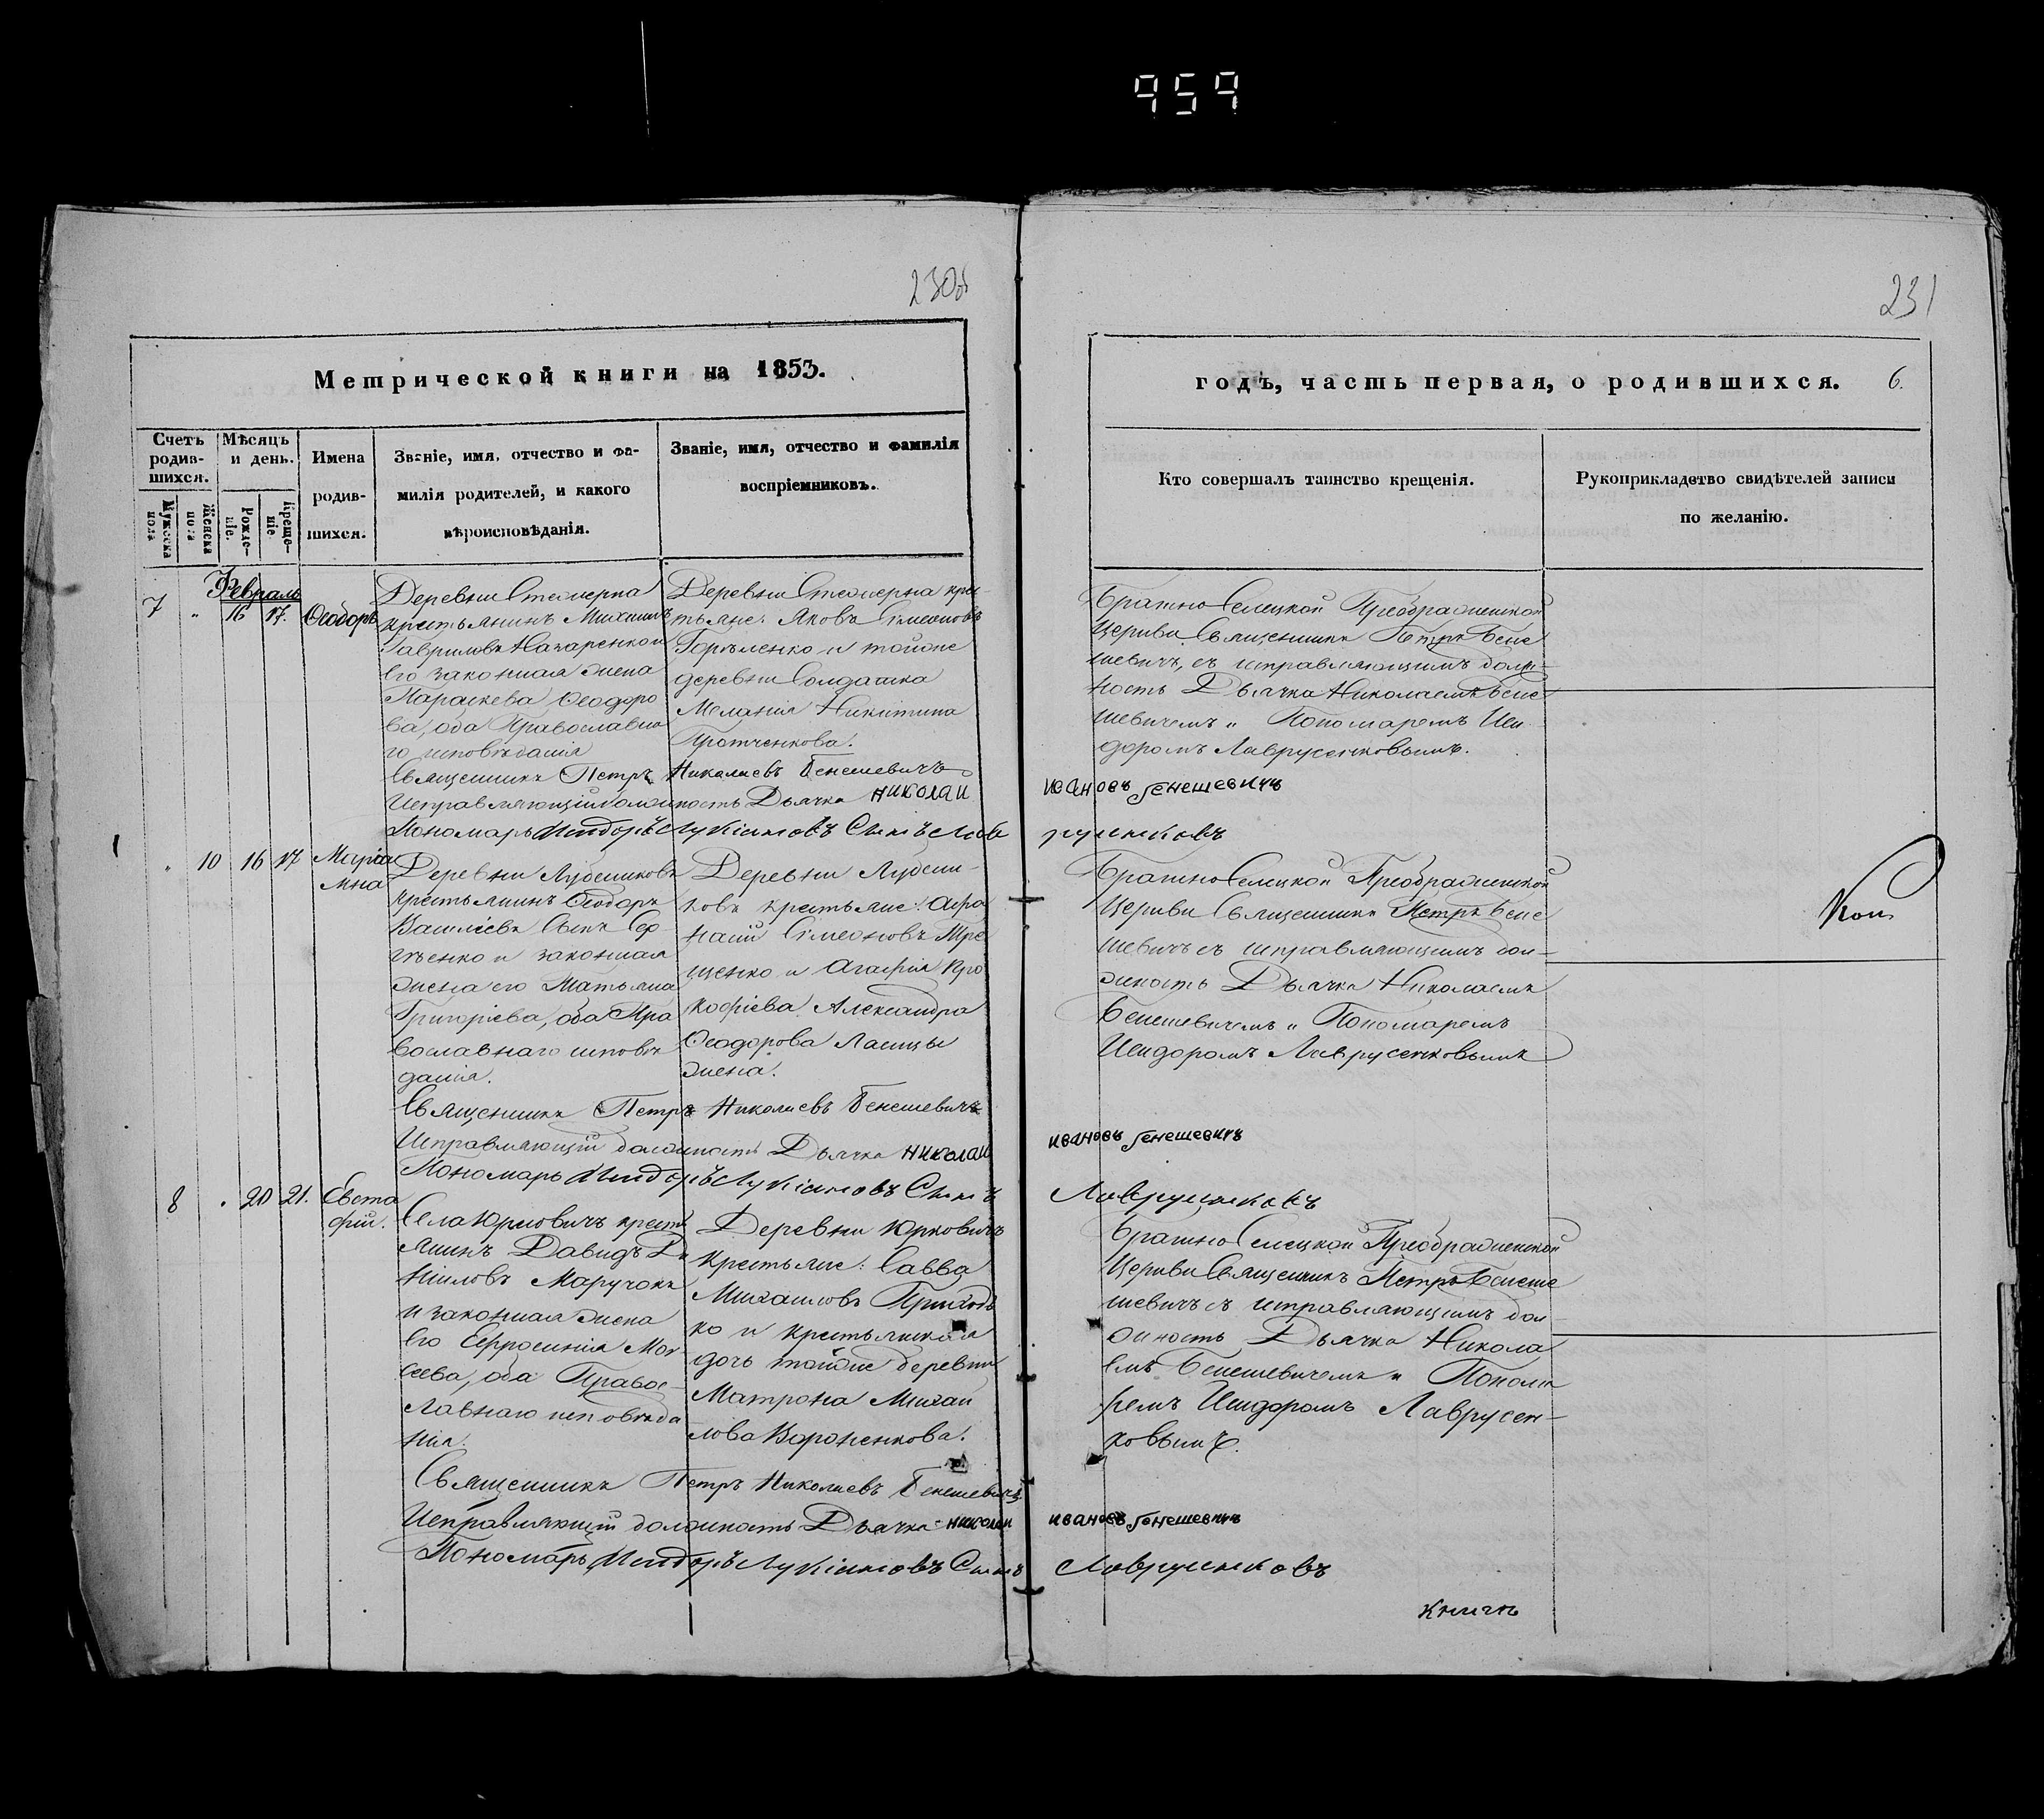 959
230об
231
Метрической книги на 1853.
Счетъ родив-шихся.
Мѣсяцъ и день.
Мужеска пола
Женска пола
Рожде-ніе.
Креще-ніе
Имена
родив-
шихся.
Званіе, имя, отчество и фа-
милія родителей, и какого
вѣроисповѣданія.
Званіе, имя, отчество и фамилія
воспріемниковъ.
годъ, часть первая, о родившихся. 6.
Кто совершалъ таинство крещенія.
Рукоприкладство свидѣтелей записи
по желанію.
Февраль
7 " 16 17. Ѳеодоръ
Деревни
крестьянинъ Михаилъ
Гавриловъ Назаренко и
его законная жена
Параскева Ѳеодоро
ва, оба Православна
го исповѣданія
Деревни крес
тьяне: Яковъ Симеоновъ
Горѣленко и тойже
деревни Солдатка
Меланія Никитина
Протченкова.
Братно Селецкой Преображенской
Церкви Священникъ Петръ Бене
шевичъ, съ исправляющимъ долж-
ность Дьячка Николаемъ Бене
шевичемъ и Пономаремъ Иси
доромъ Лаврусенковымъ.
Священникъ Петръ Николаевъ Бенешевичъ
Исправляющій должность Дьячка Николай Ивановъ Бенешевичъ
Пономарь Исидоръ Лукіановъ Сынъ Лав русенковъ
" 10 16 17 Маріа
мна
Деревни Лубениковъ
крестьянинъ Ѳеодоръ
Василіевъ Сынъ Сер
гѣенко и законная
жена его Татьяна
Григоріева, оба Пра
вославнаго исповѣ
данія.
Деревни Лубени-
ковъ крестьяне: Афа
насій Симеоновъ Тре
щенко и Агафія Про
кофіева Александра
Ѳеодорова Ласицы
жена.
Братно Селецкой Преображенской
Церкви Священникъ Петръ Бене
шевичъ съ исправляющимъ дол-
жность Дьячка Николаемъ
Бенешевичемъ и Пономаремъ
Исидоромъ Лаврусенковымъ
Священникъ Петръ Николаевъ Бенешевичъ
Исправляющій должность Дьячка Николай Ивановъ Бенешевичъ
Пономарь Исидоръ Лукіановъ Сынъ Лаврусенковъ
8 " 20 21. Евста
фій.
Села Юрковичъ крестья
нинъ Давидъ Да
ніиловъ Маручокъ
и законная жена
его Ефросинія Мои
сеева, оба Правос-
лавнаго исповѣда
нія.
Деревни Юрковичъ
крестьяне: Савва
Михаиловъ Приходь
ко и крестьянская
дочь тойже деревни
Матрона Михаи
лова Вороненкова.
Братно Селецкой Преображенской
Церкви Священникъ Петръ Бенеше
шевичъ съ исправляющимъ дол-
жность Дьячка Никола
емъ Бенешевичемъ и Понома
ремъ Исидоромъ Лаврусен-
ковымъ.
Священникъ Петръ Николаевъ Бенешевичъ
Исправляющій должность Дьячка Николай Ивановъ Бенешевичъ
Пономарь Исидоръ Лукіановъ Сынъ Лаврусенковъ